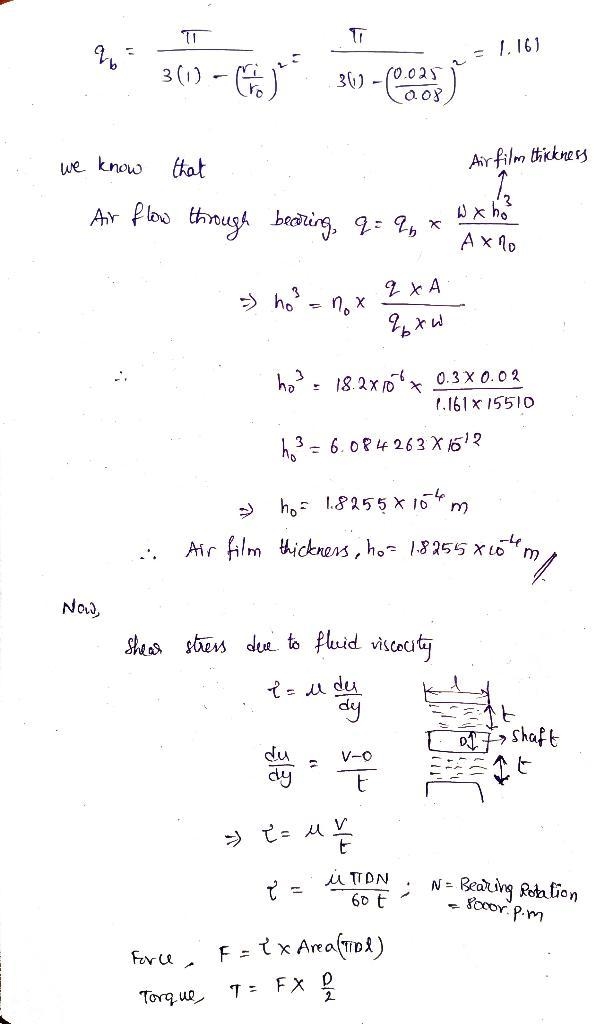 q_b = π / (3(1) - (ri/ro)²) = π / (3(1) - (0.025/0.08)²) = 1.161
Air film thickness
we know that
Air flow through bearing, q = q_b × (W × ho³) / (A × ηo)
⇒ ho³ = ηo × (q × A) / (q_b × W)
∴ ho³ = 18.2 × 10⁻⁶ × (0.3 × 0.02) / (1.161 × 15510)
ho³ = 6.084263 × 10⁻¹²
⇒ ho = 1.8255 × 10⁻⁴ m
∴ Air film thickness, ho = 1.8255 × 10⁻⁴ m //
Now,
Shear stress due to fluid viscocity
τ = μ du/dy
l
t
D → shaft
t
du/dy = (V-0)/t
⇒ τ = μ V/t
τ = μπDN / 60t ; N = Bearing Rotation
= 8000 r.p.m
Force, F = τ × Area(πDl)
Torque, T = F × D/2